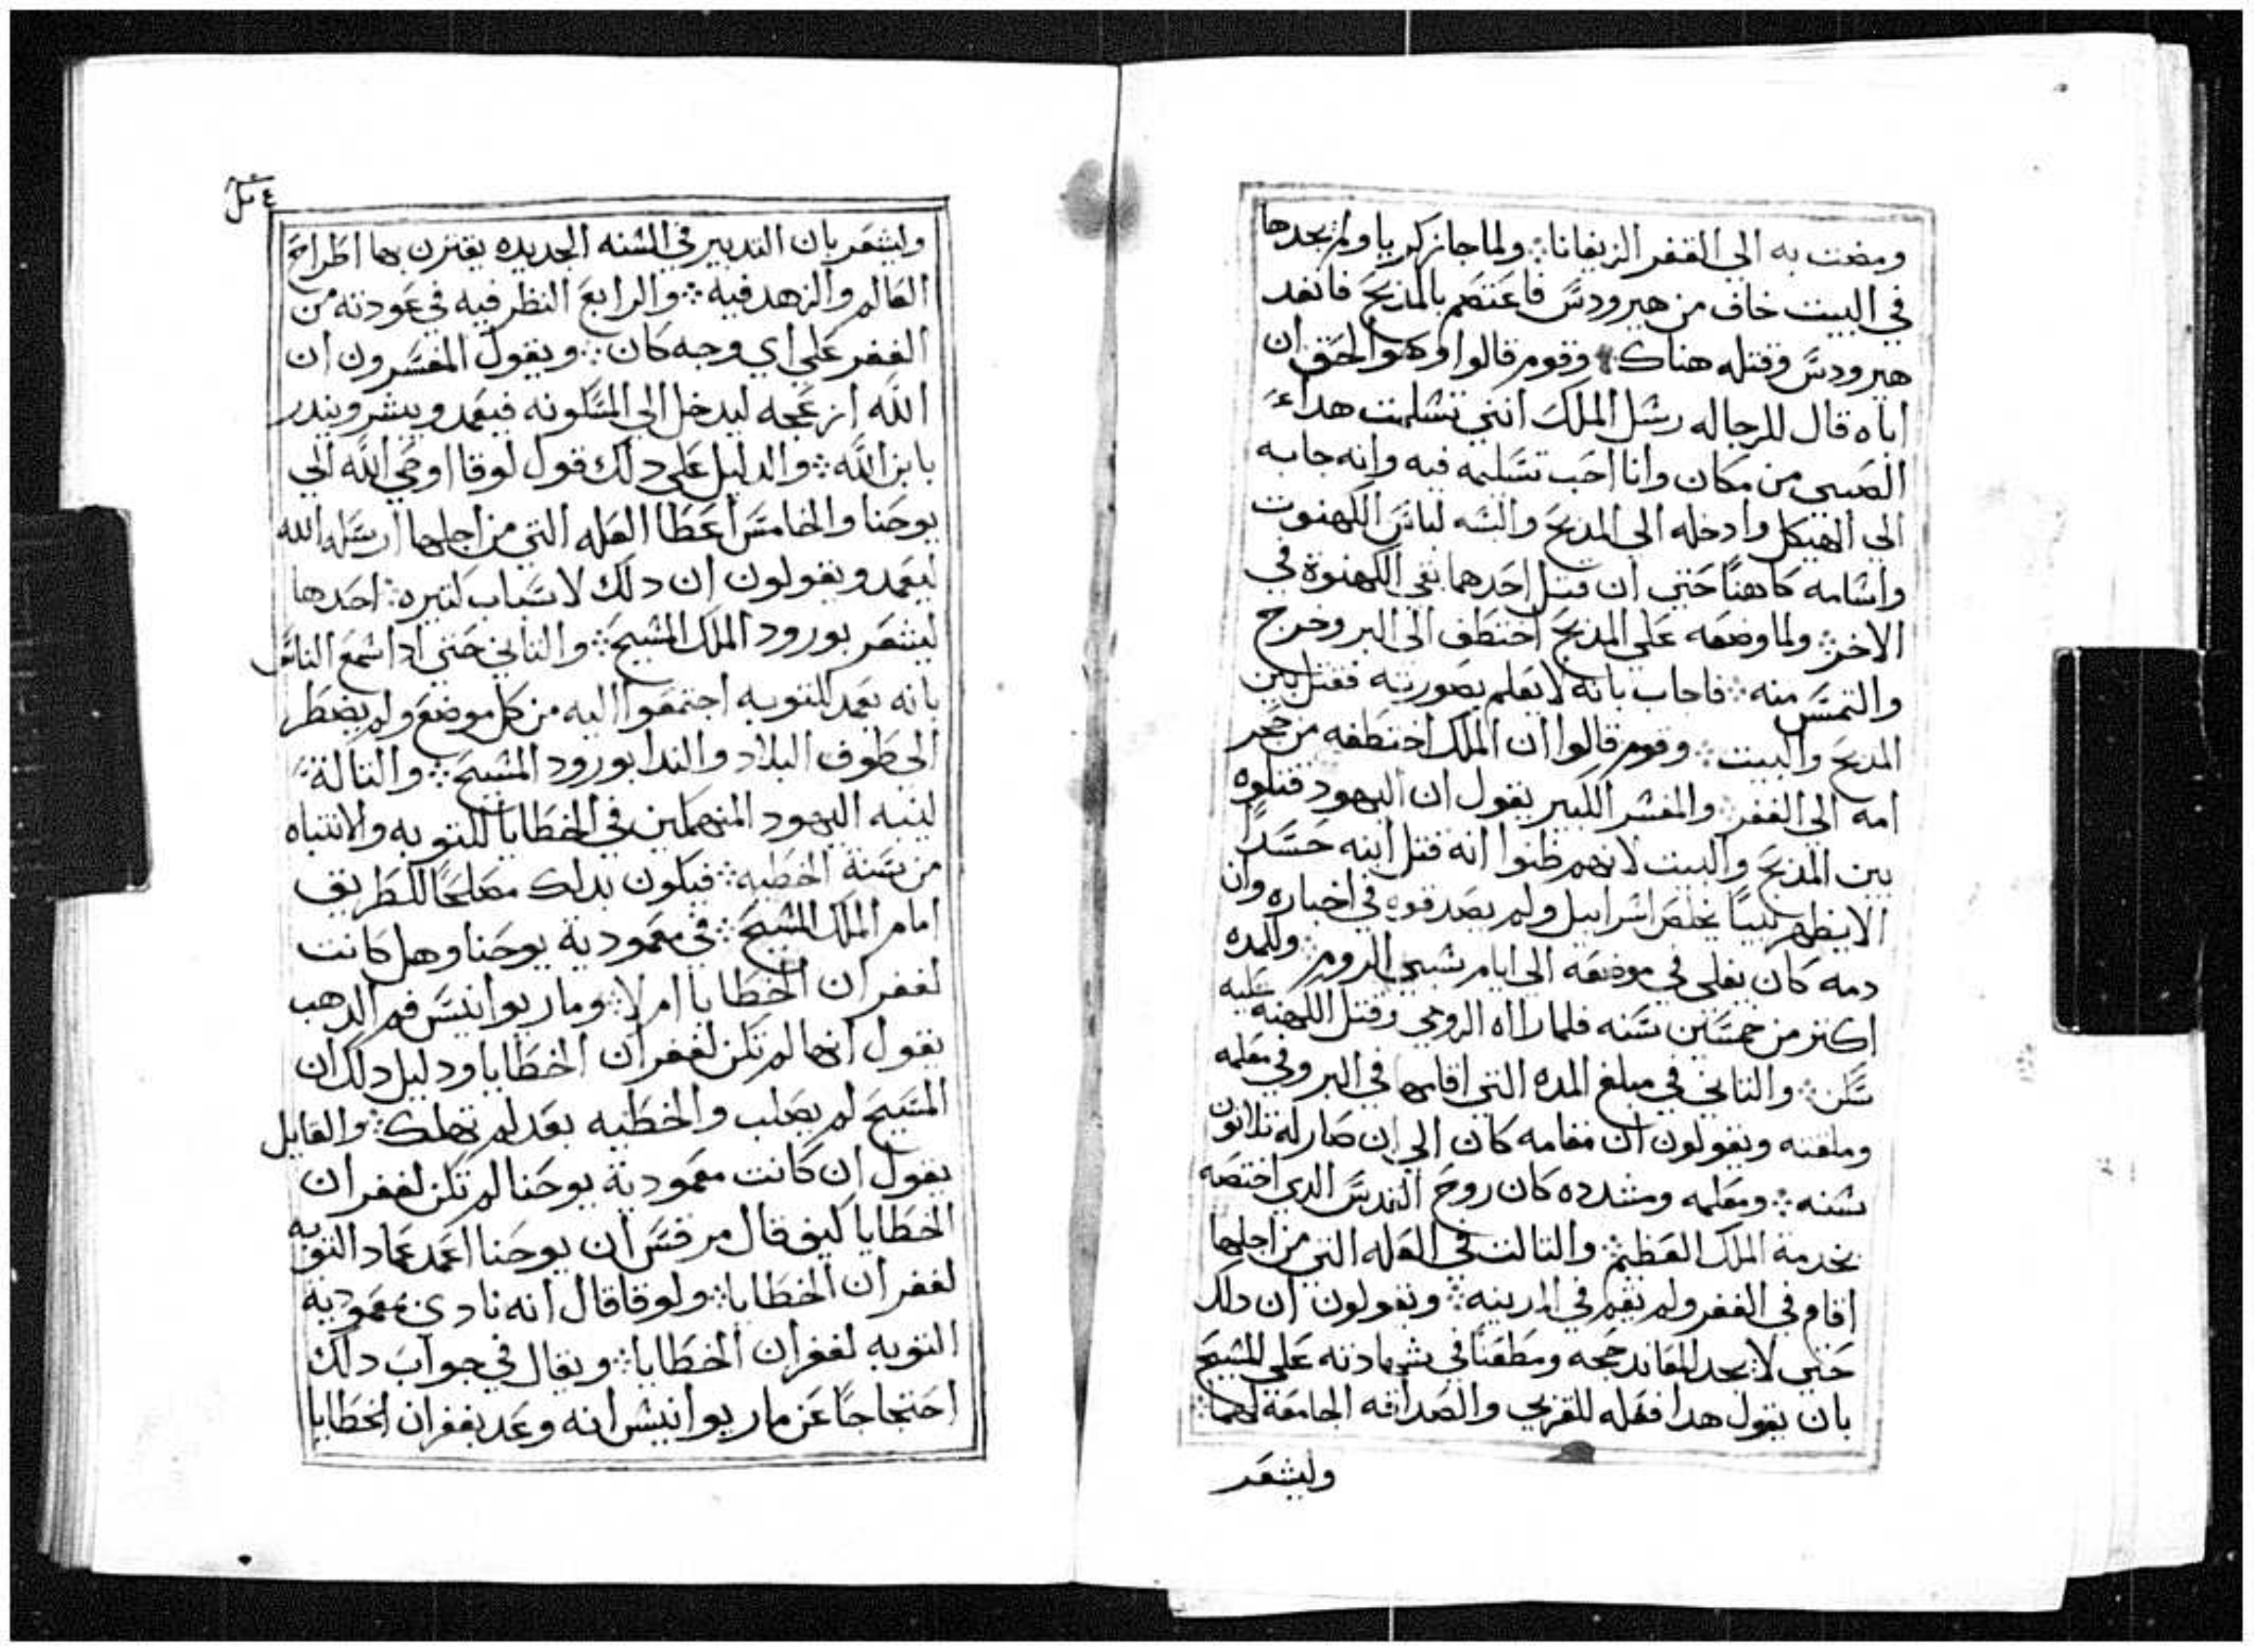 ومضت به الي القفر الزيفانا ܀ ولما جا زكريا ولم يجدها
في البيت خاف من هيرودس فاعتصم بالمذبح فانفد
هيرودس وقتله هناك وقوم قالوا وهو الحق ان
اباه قال للرجاله رسل الملك انني تسلمت هدا
الصبي من مكان وانا احب تسليمه فيه وانه جابه
الي الهيكل وادخله الي المدبح والبسه لباس الكهنوت
واسامه كاهنًا حتي ان قتل احدهما بقي الكهنوة في
الاخر ܀ ولما وضعه علي المدبح اختطف الي البر وخرج
والتمس منه ܀ فاجاب بانه لا يعلم بصورته فقتل بين
المدبح والبيت ܀ وقوم قالوا ان الملك اختطفه من حجر
امه الي القفر ܀ والمفسر الكبير يقول ان اليهود قتلوه
بين المدبح والبيت لانهم ظنوا انه قتل ابنه حسدًا
الا يظهر نبيًا يخلص اسراييل ولم يصدقوه في اخباره وان
دمه كان يغلي في موضعه الي ايام سبي الروم ܀ ولمده
اكتر من خمسين سنه فلما راه الرومي وقتل الكهنه عليه
سكن ܀ والتاني في مبلغ المده التي اقامها في البر وفي معلمه
وملقنه ويقولون ان مقامه كان الي ان صار له تلاتون
سنه ܀ ومعلمه ومشدده كان روح القدس الدي اختصه
بخدمة الملك العظيم ܀ والتالت في العله التي من اجلها
اقام في القفر ولم يقم في المدينه ܀ ويقولون ان دلك
حتي لا يجد المعاند حجه ومطعنًا في شهادته علي المسيح
بان يقول هدا فعله للقربي والصداقه الجامعة لهما ܀
وليشعر
وليشعر بان التدبير في السنه الجديده يقترن بها اطراح
العالم والزهد فيه ܀ والرابع النظر فيه في عودته من
القفر علي اي وجه كان ܀ ويقول المفسرون ان
الله ازعجه ليدخل الي المسكونه فيعمد ويبشر ويندر
بابن الله ܀ والدليل علي دلك قول لوقا اوحي الله الي
يوحنا والخامس اعطا العله التي من اجلها ارسله الله
ليعمد ويقولون ان دلك لاسباب كتيره ܀ احدها
ليشعر بورود الملك المسيح ܀ والتاني حتي ادا سمع الناس
بانه يعمد للتوبه اجتمعوا اليه من كل موضع ولم يضطر
الي طوف البلاد والندا بورود المسيح ܀ والتالتة
لينبه اليهود المنهمكين في الخطايا للتوبه والانتباه
من سنة الخطيه ܀ فيكون بدلك مصلحًا للطريق
امام الملك المسيح ܀ في معمودية يوحنا وهل كانت
لغفران الخطايا ام لا ܀ ومار يوانيس فم الدهب
يقول انها لم تكن لغفران الخطايا ودليل دلك ان
المسيح لم يصلب والخطيه بعد لم تهلك ܀ والقايل
يقول ان كانت معمودية يوحنا لم تكن لغفران
الخطايا كيف قال مرقس ان يوحنا اعمد عماد التوبه
لغفران الخطايا ܀ ولوقا قال انه نادي بمعمودية
التوبه لغفران الخطايا ܀ ويقال في جواب دلك
احتجاجًا عن مار يوانيس انه وعد بغفران الخطايا